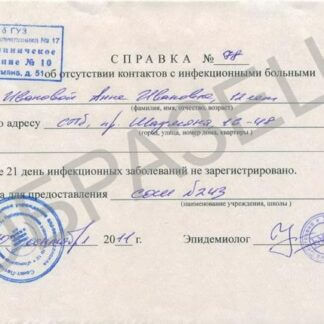 б ГУЗ
поликлиника № 17
иническое
ние № 10
д. 51
СПРАВКА № 98
об отсутствии контактов с инфекционными больными
Ивановой Анне Ивановне 11 лет
(фамилия, имя, отчество, возраст)
о адресу СПб, пр. Шаумяна 16-48
(город, улица, номер дома, квартиры)
е 21 день инфекционных заболеваний не зарегистрировано.
а для предоставления СОШ № 243
(наименование учреждения, школы)
2011 г. Эпидемиолог
SPASELI